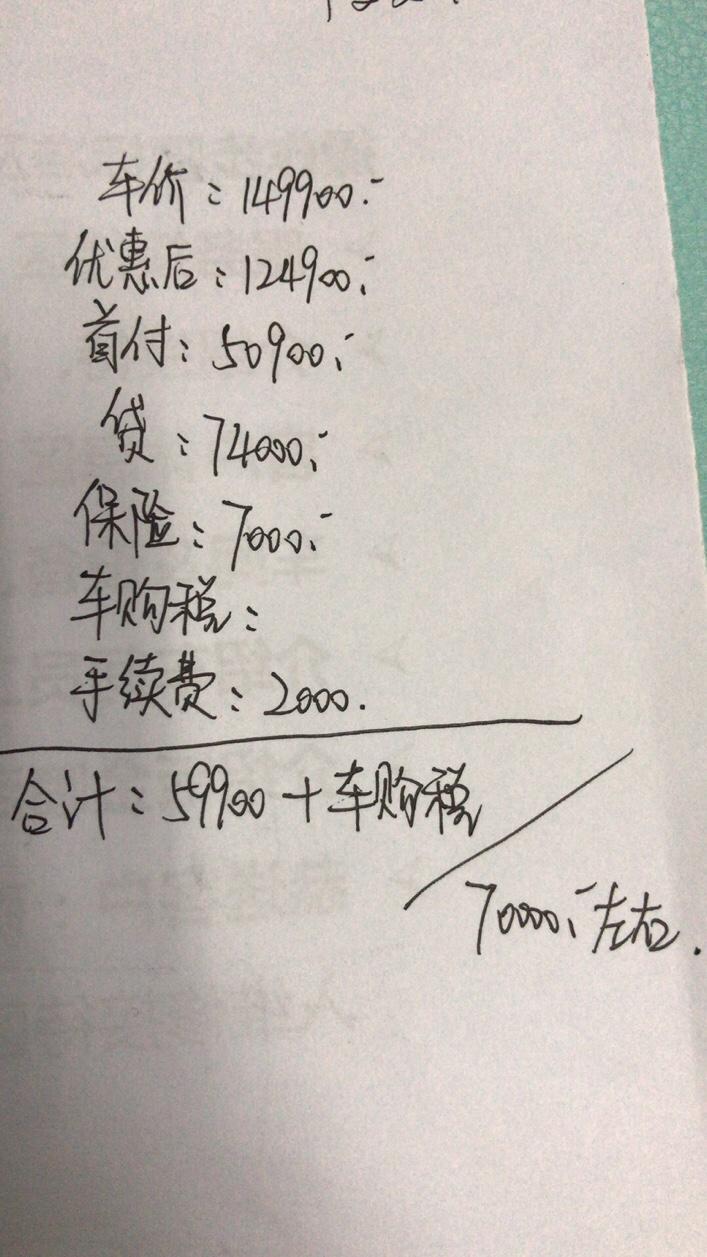 车价：149900.-
优惠后：124900.-
首付：50900.-
贷：74000.-
保险：7000.-
车购税：
手续费：2000.
合计：59900+车购税
70000.-左右.